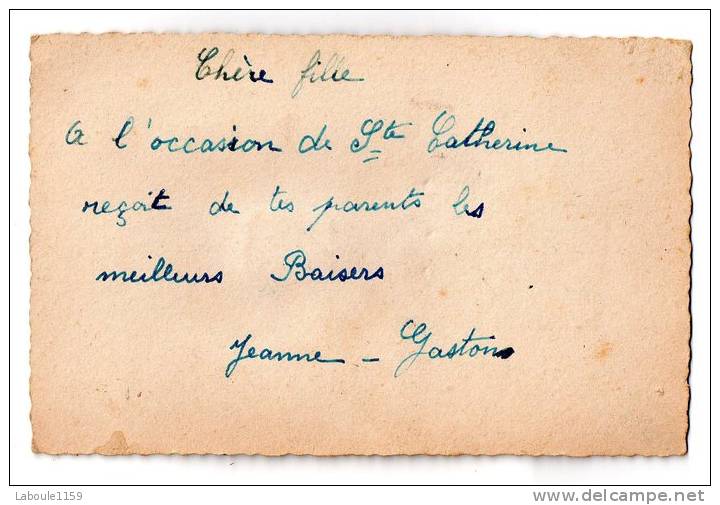 Chère fille
A l'occasion de Ste Catherine
reçoit de tes parents les
meilleurs Baisers
Jeanne - Gaston
Laboule1159
delcampe.net